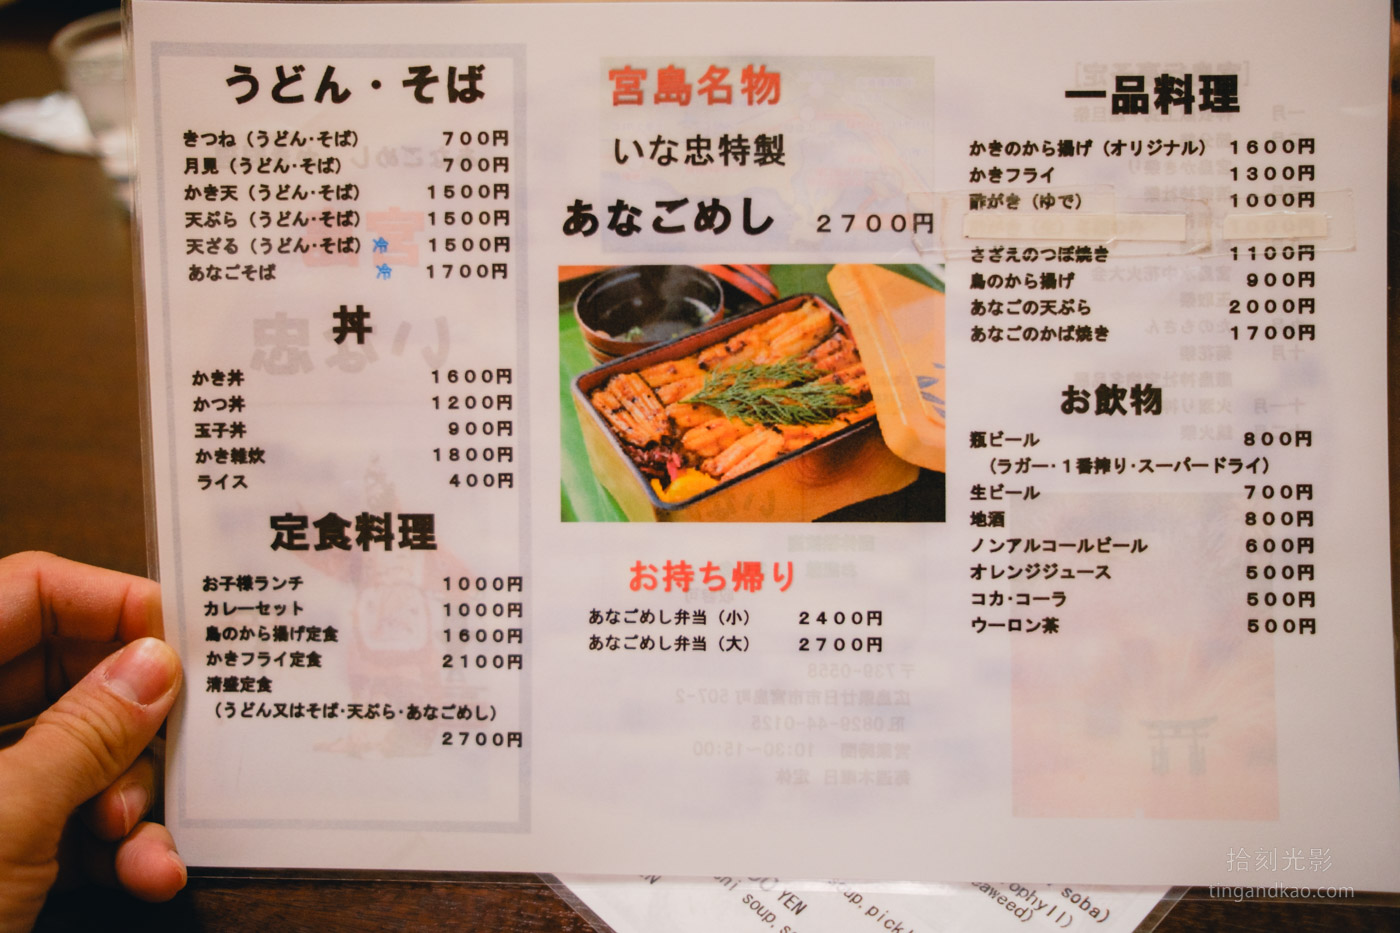 うどん・そば
きつね（うどん・そば） 700円
月見（うどん・そば） 700円
かき天（うどん・そば） 1500円
天ぷら（うどん・そば） 1500円
天ざる（うどん・そば）冷 1500円
あなごそば 冷 1700円
丼
かき丼 1600円
かつ丼 1200円
玉子丼 900円
かき雑炊 1800円
ライス 400円
定食料理
お子様ランチ 1000円
カレーセット 1000円
鳥のから揚げ定食 1600円
かきフライ定食 2100円
清盛定食
（うどん又はそば・天ぷら・あなごめし）
2700円
宮島名物
いな忠特製
あなごめし 2700円
お持ち帰り
あなごめし弁当（小） 2400円
あなごめし弁当（大） 2700円
一品料理
かきのから揚げ（オリジナル） 1600円
かきフライ 1300円
酢がき（ゆで） 1000円
さざえのつぼ焼き 1100円
鳥のから揚げ 900円
あなごの天ぷら 2000円
あなごのかば焼き 1700円
お飲物
瓶ビール 800円
（ラガー・1番搾り・スーパードライ）
生ビール 700円
地酒 800円
ノンアルコールビール 600円
オレンジジュース 500円
コカ・コーラ 500円
ウーロン茶 500円
YEN
soup.
soba)
拾刻光影
tingandkao.com